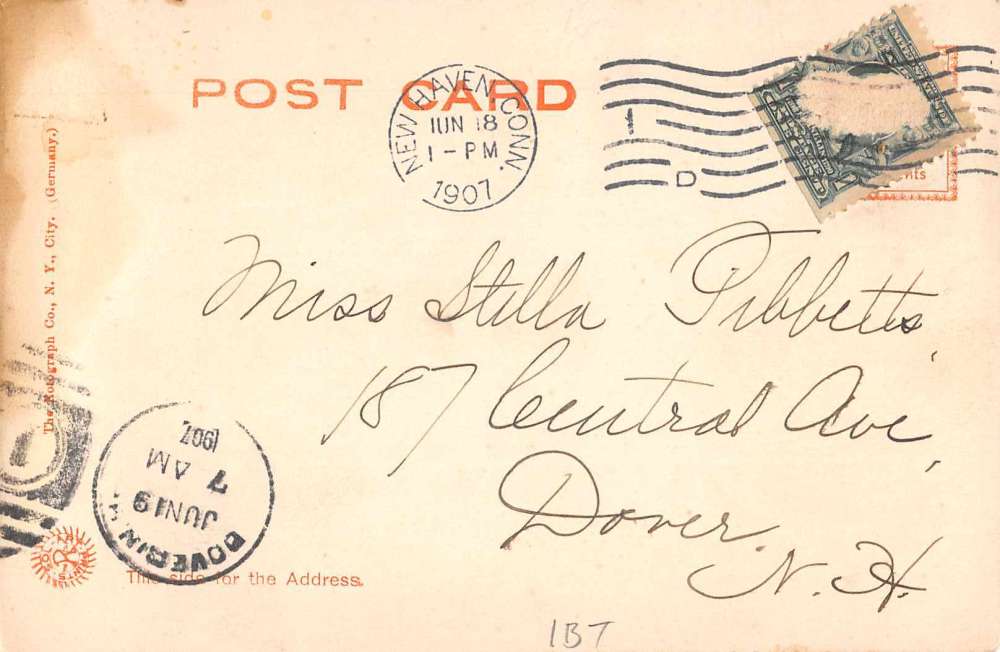 POST CARD
NEW HAVEN, CONN.
JUN 18
1 - PM
1907
1
D
nts
Miss Stella Tibbetts,
187 Central Ave,
Dover.
N. H.
The Rotograph Co., N. Y., City. (Germany.)
DOVER N.H.
JUN 19
7 AM
1907
This side for the Address.
1BT